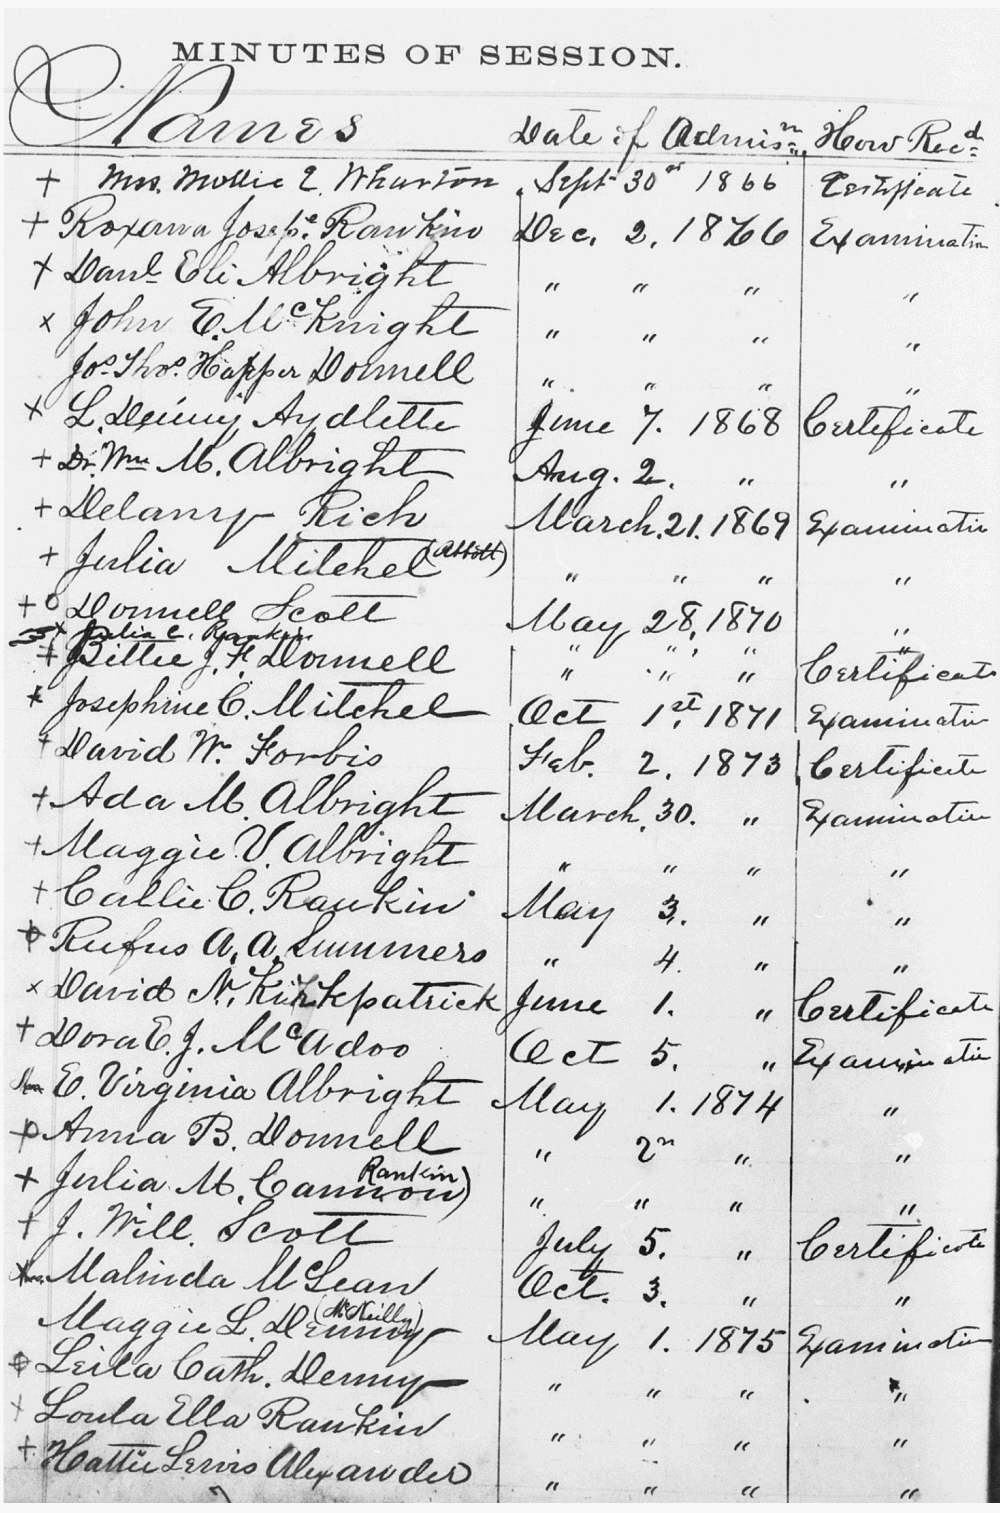 MINUTES OF SESSION.
Names Date of Admis.n How Rec.d
+ Mrs. Mollie E. Wharton Sept 30 1866 Certificate
+ Roxana Josep.e Rankin Dec. 2. 1866 Examination
+ Danl Eli Albright " " " "
x John E. McKnight " " " "
Jos. Thos. Happer Donnell " " " "
x L. Denny Aydlette June 7. 1868 Certificate
+ Dr. Wm M. Albright Aug. 2. " "
+ Delany Rich March. 21. 1869 Examination
+ Julia Mitchel (Abbott) " " " "
+ o Donnell Scott May 28, 1870 "
x Julia C. Rankin " " " "
+ Bittie J. F. Donnell " " " Certificate
x Josephine C. Mitchel Oct 1st. 1871 Examination
+ David W. Forbis Feb. 2. 1873 Certificate
+ Ada M. Albright March. 30. " Examination
+ Maggie V. Albright " " " "
+ Callie C. Rankin May 3. " "
Rufus A. A. Summers " 4. " "
x David N. Kirkpatrick June 1. " Certificate
+ Dora E. J. McAdoo Oct 5. " Examination
E. Virginia Albright May 1. 1874 "
Anna B. Donnell " 2n " "
+ Julia M. Cannon (Rankin) " " " "
+ J. Will. Scott July 5. " Certificate
Malinda McLean Oct. 3. " "
Maggie L. Denny (McNeilly) May 1. 1875 Examination
Leila Cath. Denny " " " "
+ Loula Ella Rankin " " " "
+ Hattie Lewis Alexander " " " "